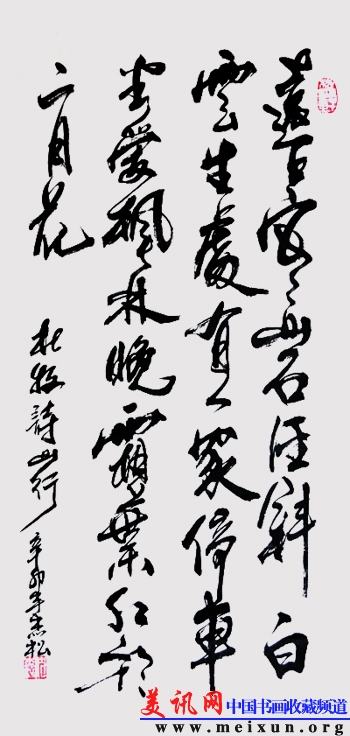 遠上寒山石径斜白
雲生處有人家停車
坐愛楓林晚霜葉红於
二月花
杜牧詩山行
辛卯年杰松
美讯网 中国书画收藏频道
www.meixun.org